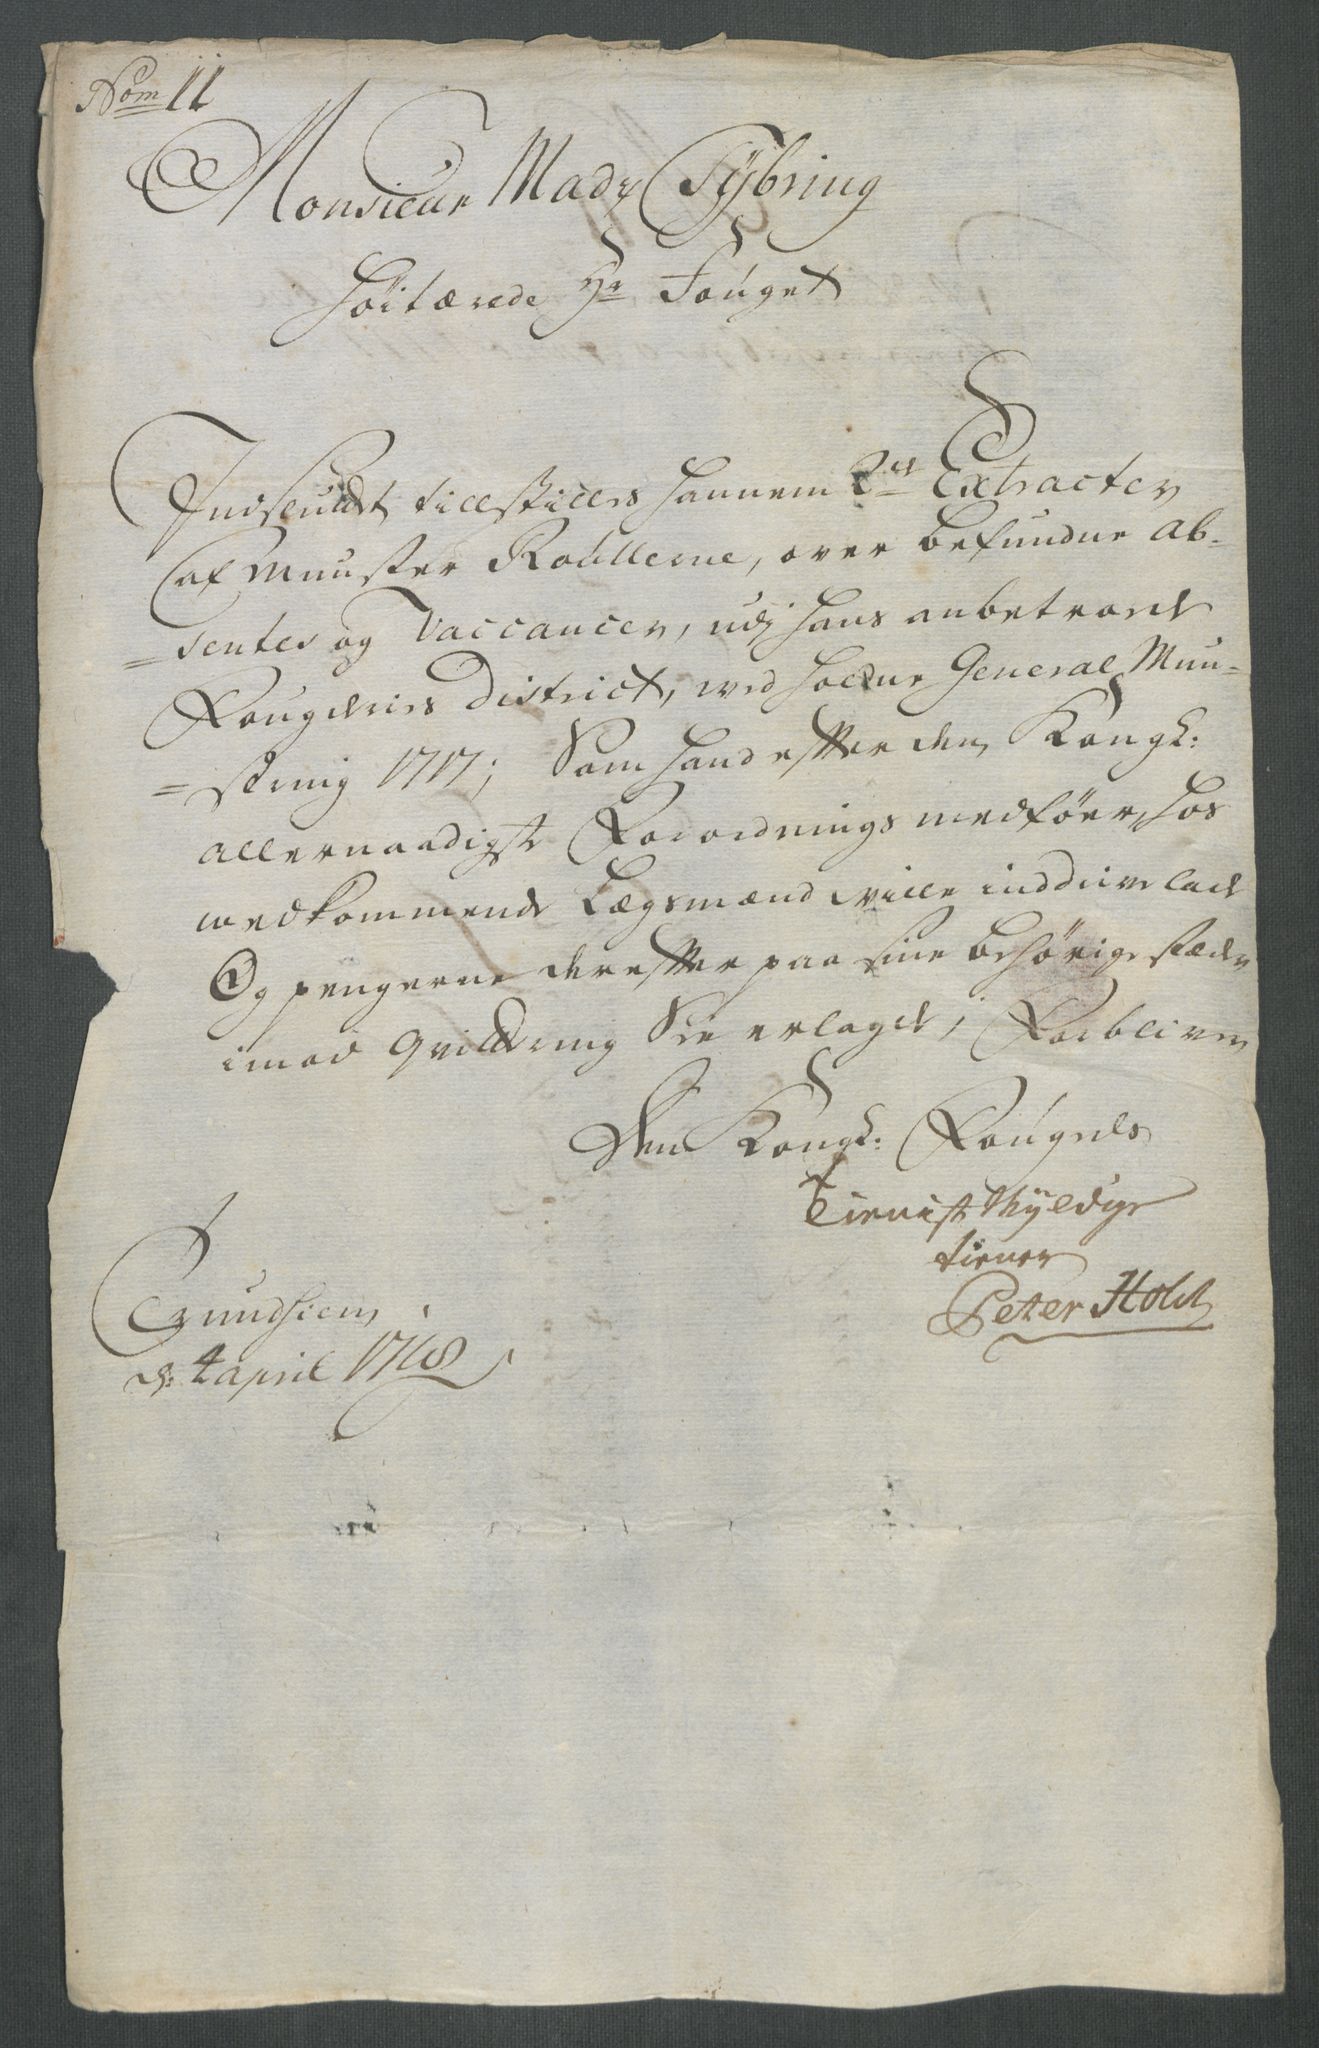 Nom 11
Monsieur Mads Sÿbring
Höitærede Hr Fouget
Indsluttet tillstilles hannem 2de Extracter
af Munster Roullerne, over befundne ab-
=sentes og Vaccancer, udj hans anbetroede
Fougderies District, ved holdne General Mun-
=string 1717; Som hand efter den Kongl:
allernaadigste Forordnings medföer, hos
vedkommende Lægsmænd ville inddrive lade
Og pengerne derefter paa sine behörige stæder
imod Qvittering erlagde; Forbliver
Den Kongl: Fougeds
Tienistskÿldige
tiener
Peter Holst
Trundhiem
d: 4 april 1718